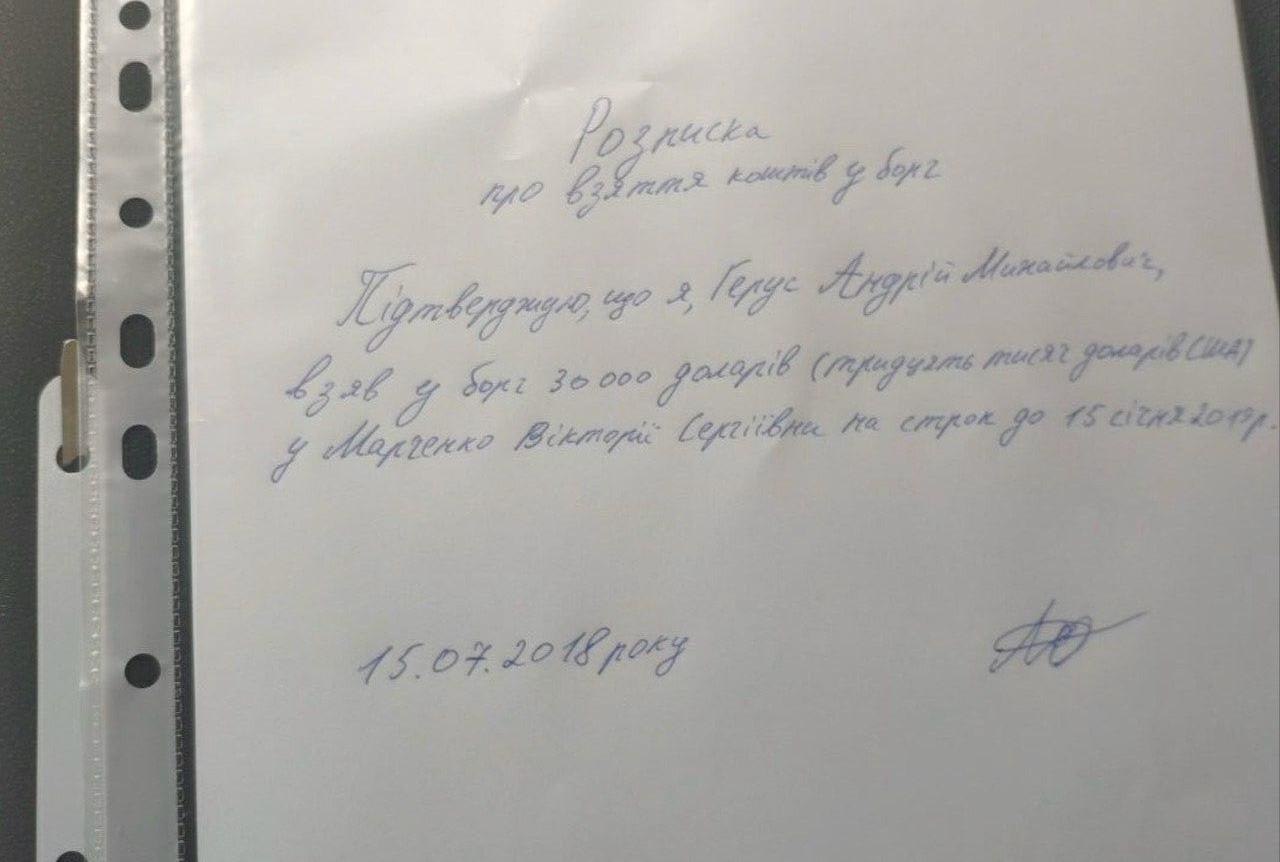 Розписка
про взяття коштів у борг
Підтверджую, що я, Герус Андрій Михайлович,
взяв у борг 30000 доларів (тридцять тисяч доларів США)
у Марченко Вікторії Сергіївни на строк до 15 січня 2019р.
15.07.2018 року